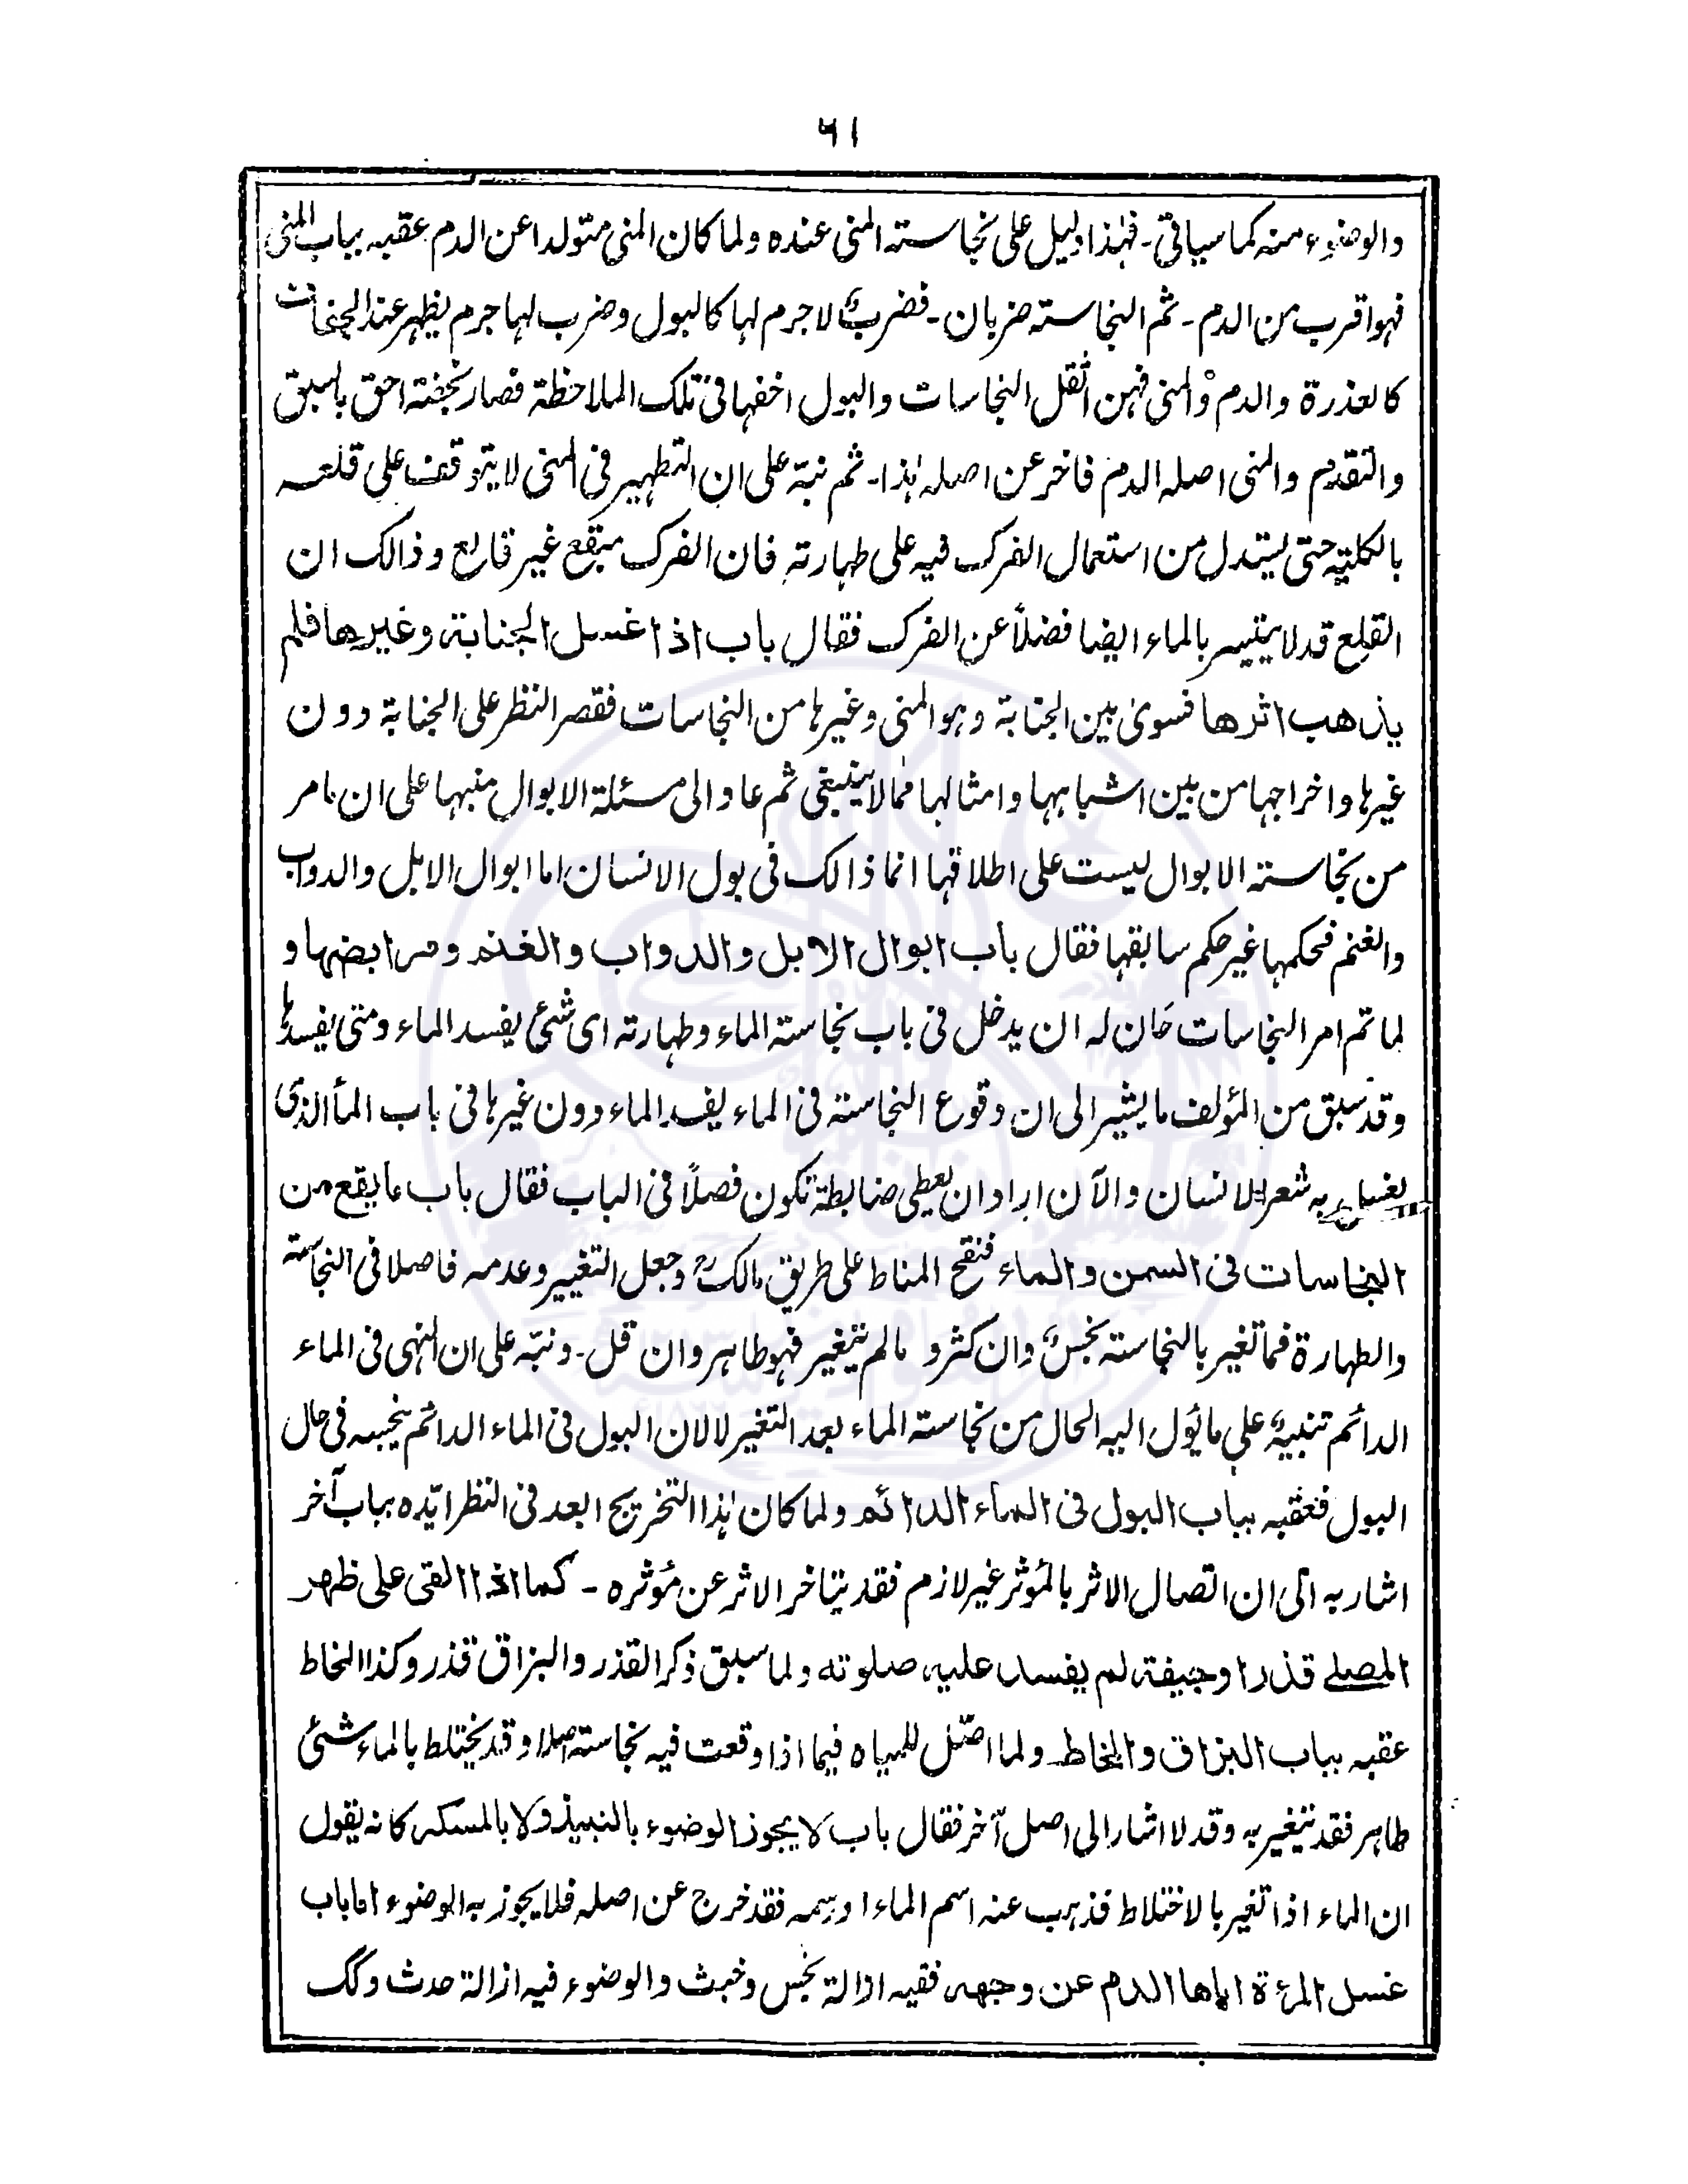 ٦١
والوضوء منه كما سياتى۔ فهذا دليل على نجاسته المنى عنده ولما كان المنى متولدا عن الدم عقبه بباب المنى
فهو اقرب من الدم۔ ثم النجاسته ضربان۔ فضربٌ لا جرم لها كالبول وضرب لها جرم يظهر عند الجفاف
كالعذرة والدم والمنى فهن أثقل النجاسات والبول اخفها فى تلك الملاحظة فصار بخفته احق بالسبق
والتقديم والمنى اصله الدم فاخر عن اصله هذا۔ ثم نبّه على ان التطهير فى المنى لا يتوقف على قلعه
بالكليّه حتى يستدل من استعمال الفرك فيه على طهارته فان الفرك مبقع غير قالع وذالك ان
القلع قد لا يتيسر بالماء ايضا فضلاً عن الفرك فقال باب اذا غسل الجنابة وغيرها فلم
يذهب اثرها فسوىٰ بين الجنابة وهو المنى وغيرها من النجاسات فقصر النظر على الجنابة دون
غيرها واخراجها من بين اشباهها وامثالها فمما لا ينبغى ثم عاد الى مسئلة الابوال منبها على ان مامر
من نجاسته الابوال ليست على اطلاقها انما ذالك فى بول الانسان اما ابوال الابل والدواب
والغنم فحكمها غير حكم سابقها فقال باب ابوال الابل والدواب والغنم ومرابضها و
لما تم امر النجاسات حان له ان يدخل فى باب نجاستة الماء وطهارته اى شئ يفسد الماء ومتى يفسدها
وقد سبق من المؤلف ما يشير الى ان وقوع النجاسته فى الماء يفسد الماء دون غيرها فى باب الماء الذى
يغسل به شعر الانسان والآن اراد ان يعطى ضابطة تكون فصلاً فى الباب فقال باب ما يقع من
النجاسات فى السمن والماء فنقح المناط على طريق مالكؒ وجعل التغيير وعدمه فاصلا فى النجاسته
والطهارة فما تغير بالنجاسته نجسٌ وان كثر و مالم يتغير فهو طاهر وان قل۔ ونبّه على ان النهى فى الماء
الدائم تنبيهٌ على ما يؤل اليه الحال من نجاسته الماء بعد التغير لا لان البول فى الماء الدائم ينجسه فى حال
البول فعقبه بباب البول فى الماء الدائم ولما كان هذا التخريج ابعد فى النظر ايّده بباب آخر
اشار به الى ان اتصال الاثر بالمؤثر غير لازم فقد يتاخر الاثر عن مؤثره ۔ كما اذا القى على ظهر
المصلے قذر او جيفة لم يفسد عليه صلوته ولما سبق ذكر القذر والبزاق قذر وكذا المخاط
عقبه بباب البزاق والمخاط ولما اصّل للمياه فيما اذا وقعت فيه نجاسته اصلا وقد يختلط بالماء شئ
طاهر فقد يتغير به وقد لا اشار الى اصل آخر فقال باب لا يجوز الوضوء بالنبيذ ولا بالمسكر كانه يقول
ان الماء اذا تغير بالاختلاط فذهب عنه اسم الماء او رسمه فقد خرج عن اصله فلا يجوز به الوضوء اما باب
غسل المرءة اباها الدم عن وجهه ففيه ازالة نجس وخبث والوضوء فيه ازالة حدث وكك